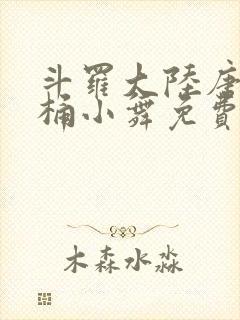 斗羅大陸唐
桶小舞免費
木森水淼